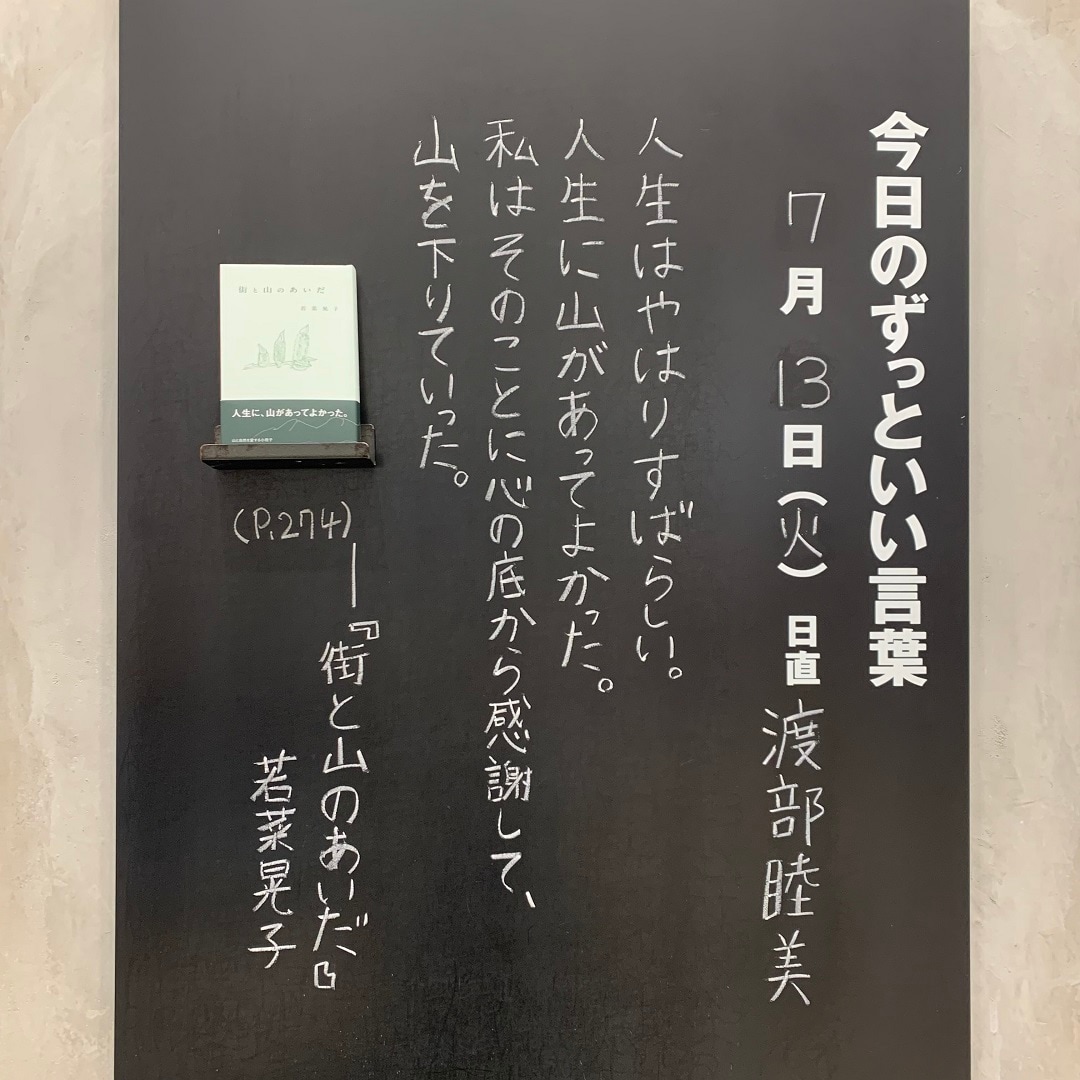 今日のずっといい言葉
7月13日(火) 日直 渡部睦美
人生はやはりすばらしい。
人生に山があってよかった。
私はそのことに心の底から感謝して、
山を下りていった。
(P.274)
―『街と山のあいだ』
若菜晃子
街と山のあいだ
若菜晃子
人生に、山があってよかった。